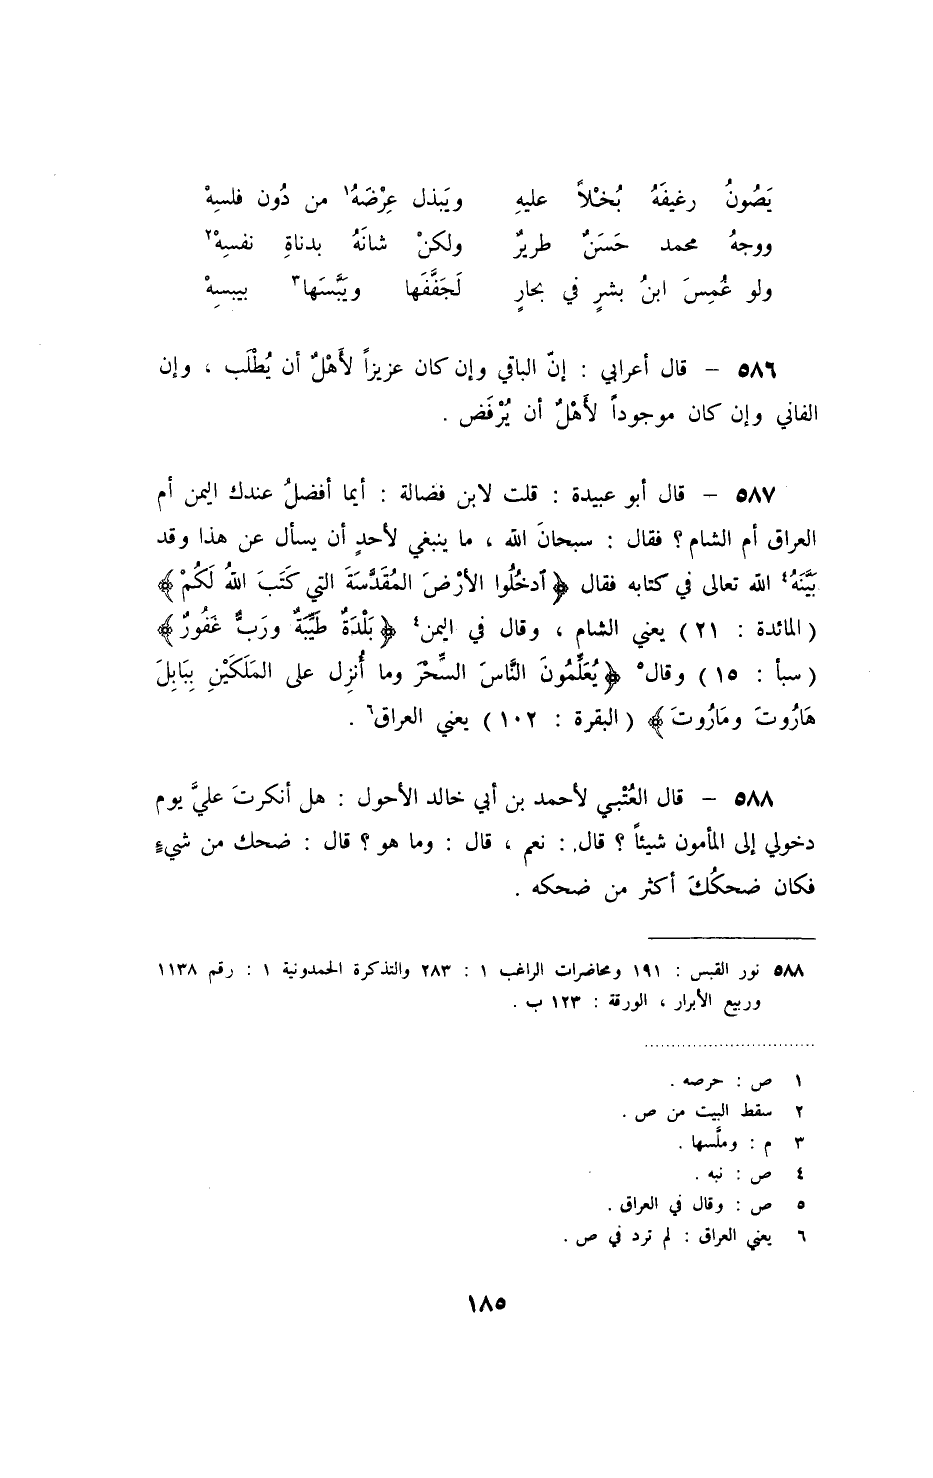 يَصُونُ رغيفَهُ بُخْلاً عليهِ ويَبذل عِرْضَهُ١ من دُون فلسِهْ
ووجهُ محمد حَسَنٌ طريرٌ ولكنْ شانَهُ بدناةِ نفسِهْ٢
ولو غُمِسَ ابنُ بشرٍ في بحارٍ لَجَفَّفَها ويَبَّسَها٣ بيبسِهْ
٥٨٦ – قال أعرابي : إنّ الباقي وإن كان عزيزاً لأَهْلٌ أن يُطْلَب ، وإن
الفاني وإن كان موجوداً لأَهْلٌ أن يُرْفَض .
٥٨٧ – قال أبو عبيدة : قلت لابن فضالة : أيما أفضلُ عندك اليمن أم
العراق أم الشام ؟ فقال : سبحانَ الله ، ما ينبغي لأحدٍ أن يسأل عن هذا وقد
بَيَّنَهُ٤ الله تعالى في كتابه فقال ﴿ آدخُلُوا الأرْضَ المُقَدَّسَةَ التي كَتَبَ اللهُ لَكُمْ ﴾
( المائدة : ٢١ ) يعني الشام ، وقال في اليمن٤ ﴿ بَلْدَةٌ طَيِّبَةٌ ورَبٌّ غَفُورٌ ﴾
( سبأ : ١٥ ) وقال٥ ﴿ يُعَلِّمُونَ النَّاسَ السِّحْرَ وما أُنزِل على المَلَكَيْنِ بِبَابِلَ
هَارُوتَ ومَارُوتَ ﴾ ( البقرة : ١٠٢ ) يعني العراق٦ .
٥٨٨ – قال العُتْبي لأحمد بن أبي خالد الأحول : هل أنكرتَ عليَّ يوم
دخولي إلى المأمون شيئاً ؟ قال : نعم ، قال : وما هو ؟ قال : ضحك من شيءٍ
فكان ضحكُكَ أكثر من ضحكه .
٥٨٨ نور القبس : ١٩١ ومحاضرات الراغب ١ : ٢٨٣ والتذكرة الحمدونية ١ : رقم ١١٣٨
وربيع الأبرار ، الورقة : ١٢٣ ب .
١ ص : حرصه .
٢ سقط البيت من ص .
٣ م : وملَّسها .
٤ ص : نبه .
٥ ص : وقال في العراق .
٦ يعني العراق : لم ترد في ص .
١٨٥